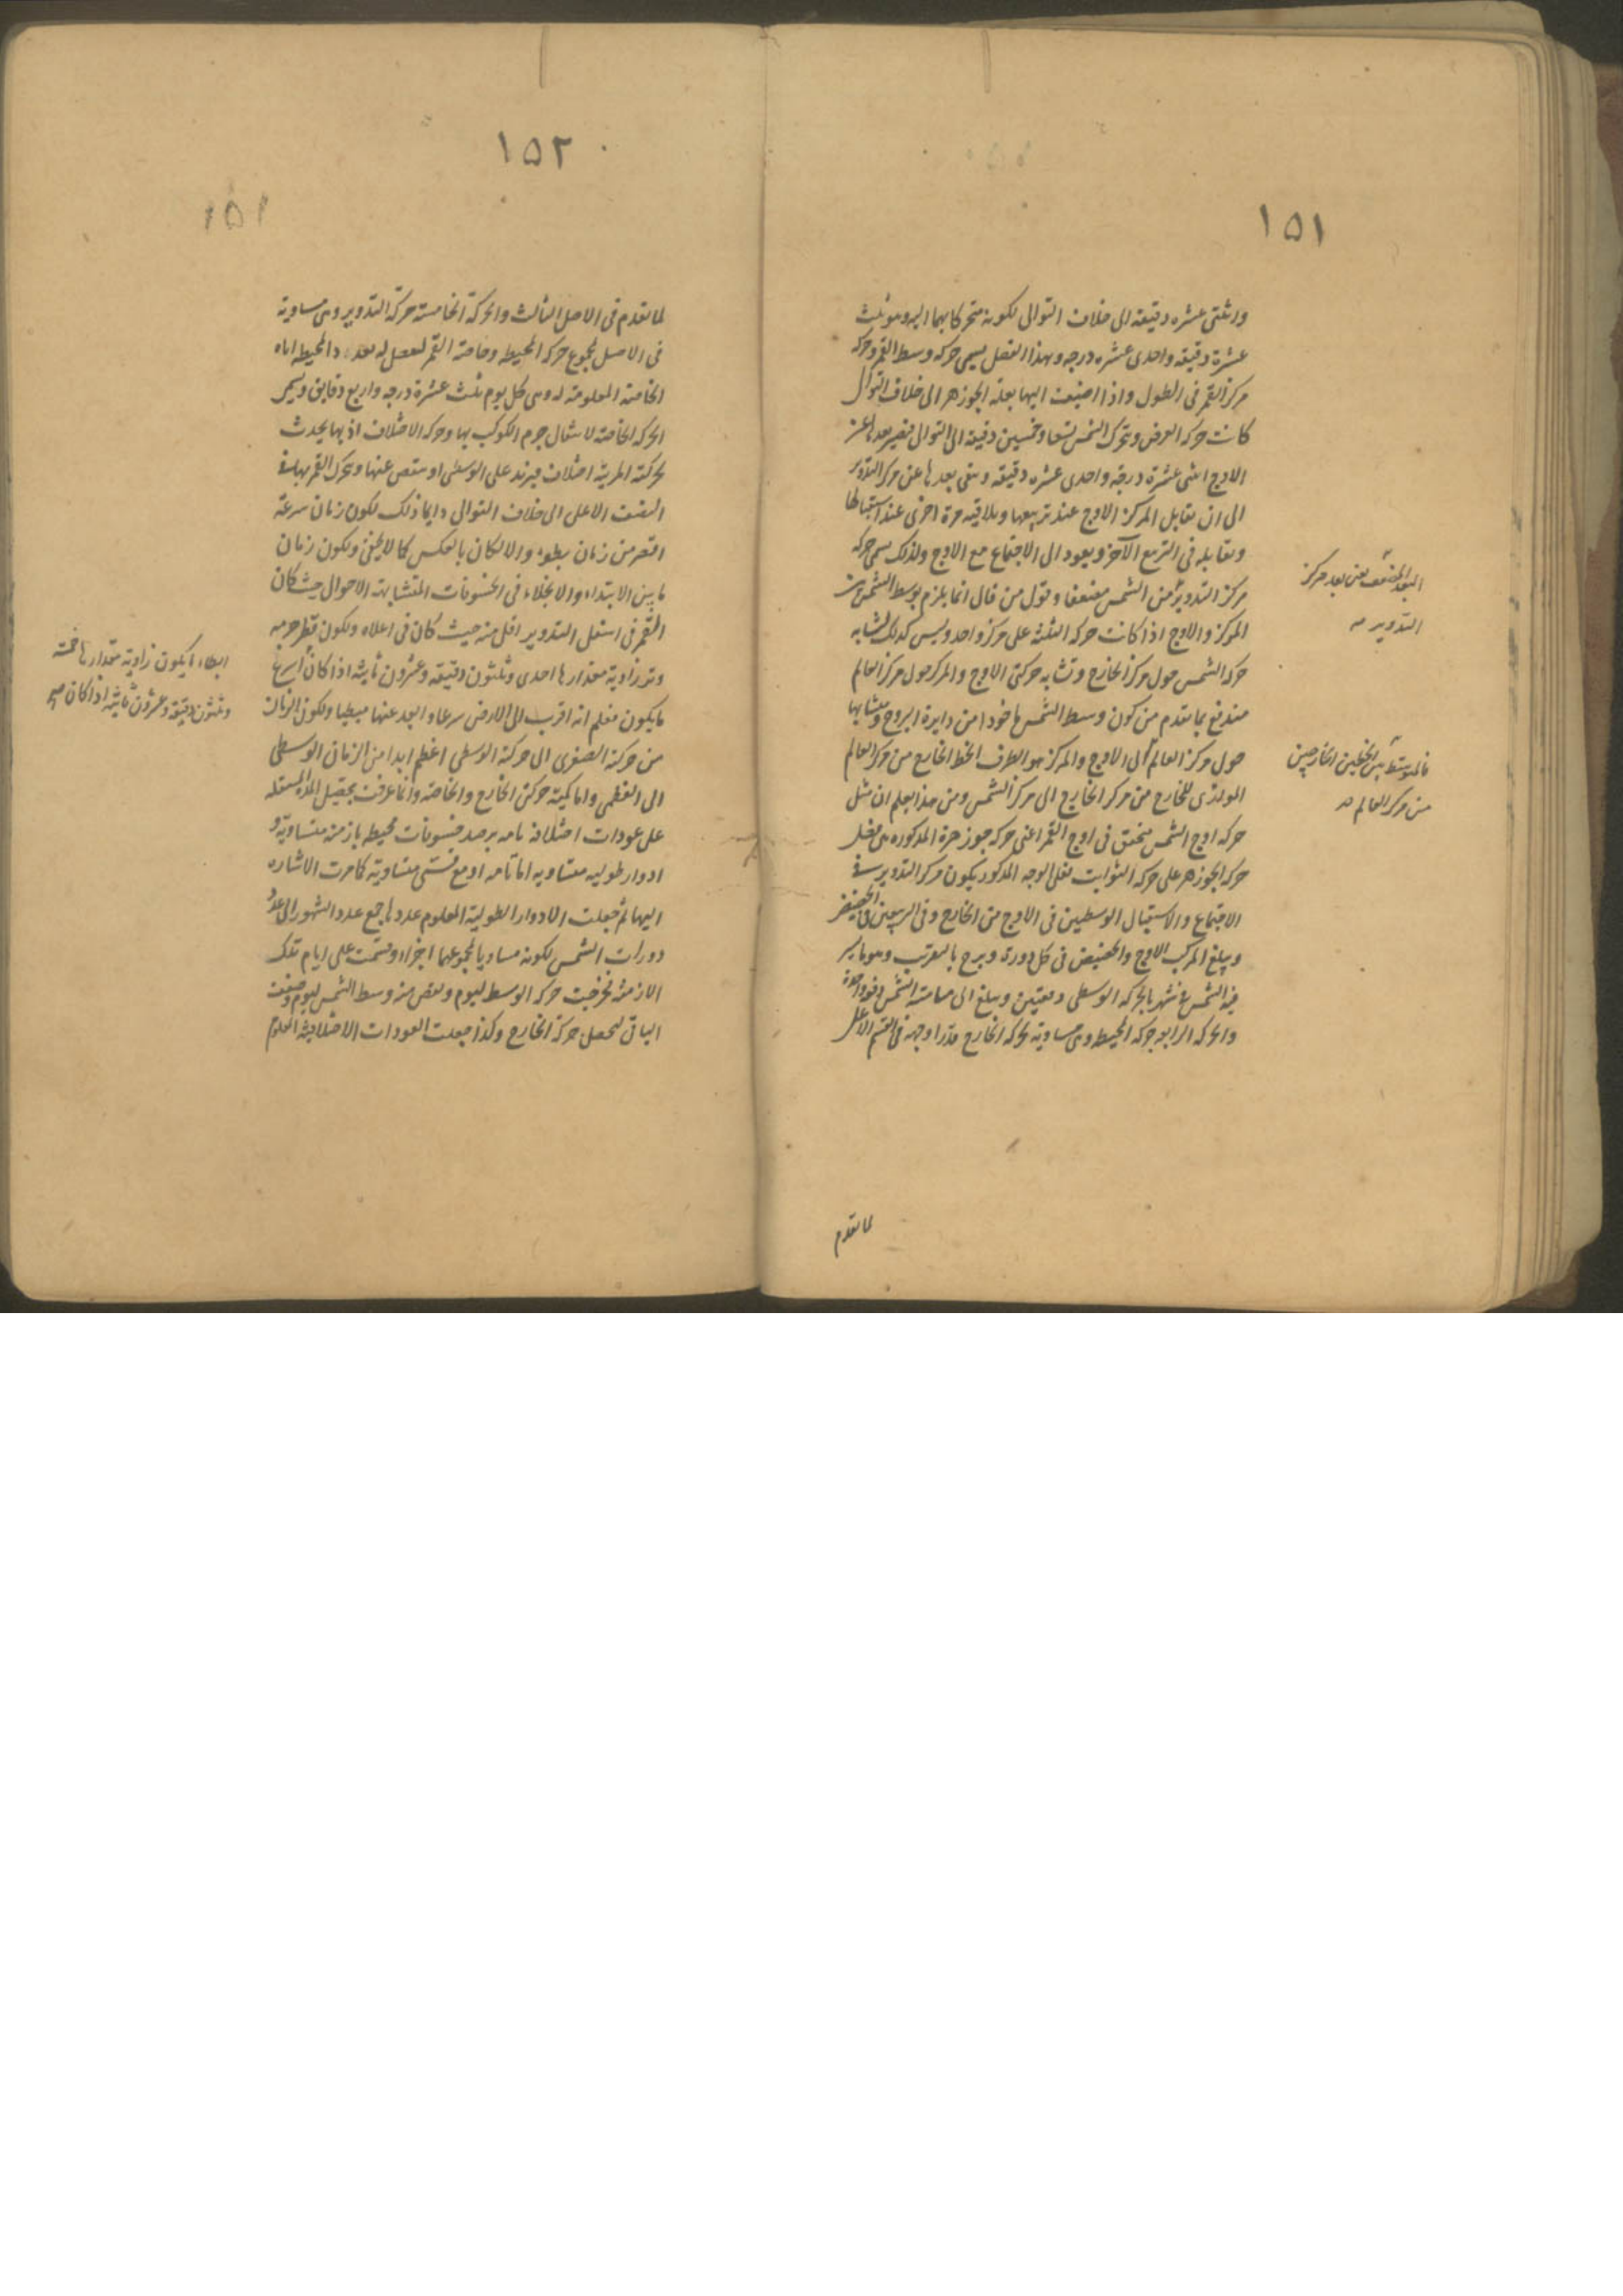 ١٥١
واثنتى عشره دقيقه الى خلاف التوالى لكونه متحركا بهما اليه وهو ثلث
عشرة دقيقه واحدى عشره درجه وبهذا الفضل يسمى حركه وسط القمر وحركه
مركز القمر فى الطول واذا اضيفت اليها بعله الجوزهر الى خلاف التوالى
كانت حركه العرض وبتحرك الشمس تسعا وخمسين دقيقه الى التوالى فيصير بعدها عن
الاوج اثنى عشرة درجه واحدى عشره دقيقه وبقى بعدها عن مركز التدوير
الى ان يقابل المركز الاوج عند تربيعها ويلاقيه مرة اخرى عند استقبالها
ويقابله فى التربيع الآخر ويعود الى الاجتماع مع الاوج ولذلك يسمى حركه
مركز التدوير من الشمس مضعفا وقول من قال انما يلزم توسط الشمس بين
المركز والاوج اذا كانت حركه الثلثة على مركز واحد وليس كذلك لتشابه
حركه الشمس حول مركز الخارج وتشابه حركتى الاوج والمركز حول مركز العالم
مندفع بما تقدم من كون وسط الشمس ماخوذا من دايرة البروج وتشابهها
حول مركز العالم الى الاوج والمركز هو الطرف الخط الخارج من مركز العالم
الموازى للخارج من مركز الخارج الى مركز الشمس ومن هذا يعلم ان مثل
حركه اوج الشمس متحقق فى اوج القمر اعنى حركه جوزهرة المذكوره هى بفضل
حركه الجوزهر على حركه الثوابت فعلى الوجه المذكور يكون مركز التدوير فى
الاجتماع والاستقبال الوسطيين فى الاوج من الخارج وفى التربيعين فى الحضيض
ويبلغ المركز الاوج والحضيض فى كل دورة وبرج بالتقريب وهو ما يسير
فيه الشمس فى شهر بالحركه الوسطى دفعتين ويبلغ الى مسامتة الشمس دفعة واحدة
والحركه الرابعه حركه المحيطه وهى مساوية لحركه الخارج قدرا وجهة فى القسم الاعلى
لما تقدم
البعد المضعف يعنى بعد مركز
التدوير صه
فالمتوسط بين الخطين الخارجين
من مركز العالم صه
١٥٢
١٥١
لما تقدم فى الاصل الثالث والحركة الخامسة حركة التدوير وهى مساوية
فى الاصل لمجموع حركه المحيطه وخاصة القمر لفضل له بعد المحيطه اياه
الخاصة المعلومة له وهى كل يوم ثلث عشرة درجه واربع دقايق ويسمى
الحركه الخاصة لاشتمال جرم الكوكب بها وحركه الاختلاف اذ بها يحدث
لحركته المرئية اختلاف فيزيد على الوسطى او ينقص عنها وتحرك القمر بها فى
النصف الاعلى الى خلاف التوالى دايما ذلك لكون زمان سرعة
اقصر من زمان بطوء والا لكان بالعكس كما لا يخفى ويكون زمان
ما بين الابتداء والانجلاء فى الخسوفات المتشابهة الاحوال حيث كان
القمر فى اسفل التدوير اقل منه حيث كان فى اعلاه ولكون قطر جرمه
وتر زاوية مقدارها احدى وثلثون دقيقه وعشرون ثانية اذا كان اسرع
ما يكون فعلم انه اقرب الى الارض سرعا وابعد عنها مبطيا ولكون الزمان
من حركة الصغرى الى حركة الوسطى اعظم ابدا من الزمان الوسطى
الى العظمى واما كمية حركتى الخارج والخاصة وانما عرفت بتحصيل المدة المشتمله
على عودات اختلافه تامه برصد خسوفات محيطه بازمنه متساوية و
ادوار طوليه متساويه اما تامه او مع قسى متساوية كما مرت الاشاره
اليها ثم جعلت الادوار الطولية المعلوم عددها جمع عدد الشهور الى عدد
دورات الشمس لكونه مساويا لمجموعهما اجزاء وقسمت على ايام تلك
الازمنة فخرجت حركه الوسط ليوم ونقص منه وسط الشمس ليوم وضعفت
الباقى لتحصل حركة الخارج وكذا جعلت العودات الاختلافية المعلوم
ابطاء ما يكون زاوية مقدارها خمسة
وثلثون دقيقه وعشرون ثانية اذا كان صح